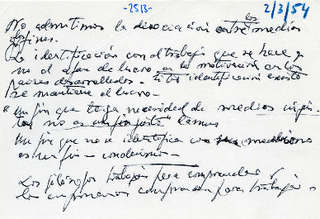 -2513-
2/3/54
No admitimos la disociación entre los medios
y fines.
La identificación con el trabajo que se hace y
no el afan de lucro es la motivación en los
paises desarrollados - si la identificación existe
se mantiene el lucro -
"Un fin que tenga necesidad de medios injus-
tos no es un fin justo" Camus
Un fin que no se identifica con medios
es un fin - condiciones -
Los filósofos trabajan para comprender y
los empresarios comprenden para trabajar -